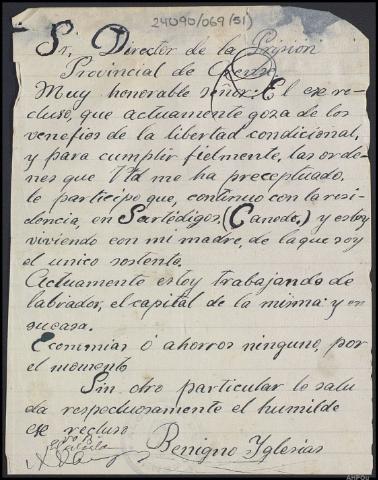 24090/069 (51)
Sr, Director de la Prision
Provincial de Orense.
Muy honorable señor: El exre-
cluso, que actuamente goza de los
venefios de la libertad condicional,
y para cumplir fielmente, las orde-
nes que Vd me ha preceptuado.
le participo que, continuo con la resi-
dencia, en Sartédigos, (Canedo,) y estoy
viviendo con mi madre, de la que soy
el unico sostento.
Actuamente estoy trabajando de
labrador, el capital de la misma y en
sucasa.
Ecomias ó ahorros ninguno, por
el momento
Sin otro particular le salu
da respectuosamente el humilde
exe recluso
Benigno Yglesias
AHPOU